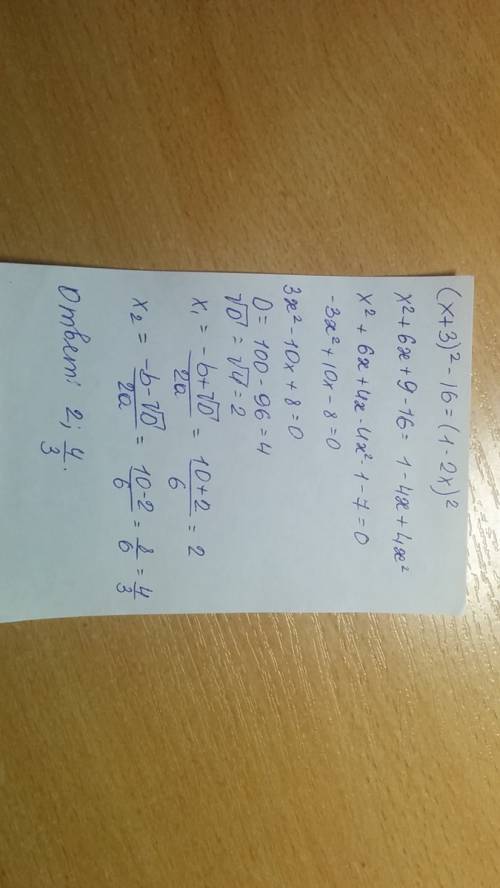 (x+3)² - 16 = (1 - 2x)²
x² + 6x + 9 - 16 = 1 - 4x + 4x²
x² + 6x + 4x - 4x² - 1 - 7 = 0
-3x² + 10x - 8 = 0
3x² - 10x + 8 = 0
D = 100 - 96 = 4
√D = √4 = 2
x₁ = -b+√D / 2a = 10+2 / 6 = 2
x₂ = -b-√D / 2a = 10-2 / 6 = 8/6 = 4/3
Ответ: 2; 4/3.